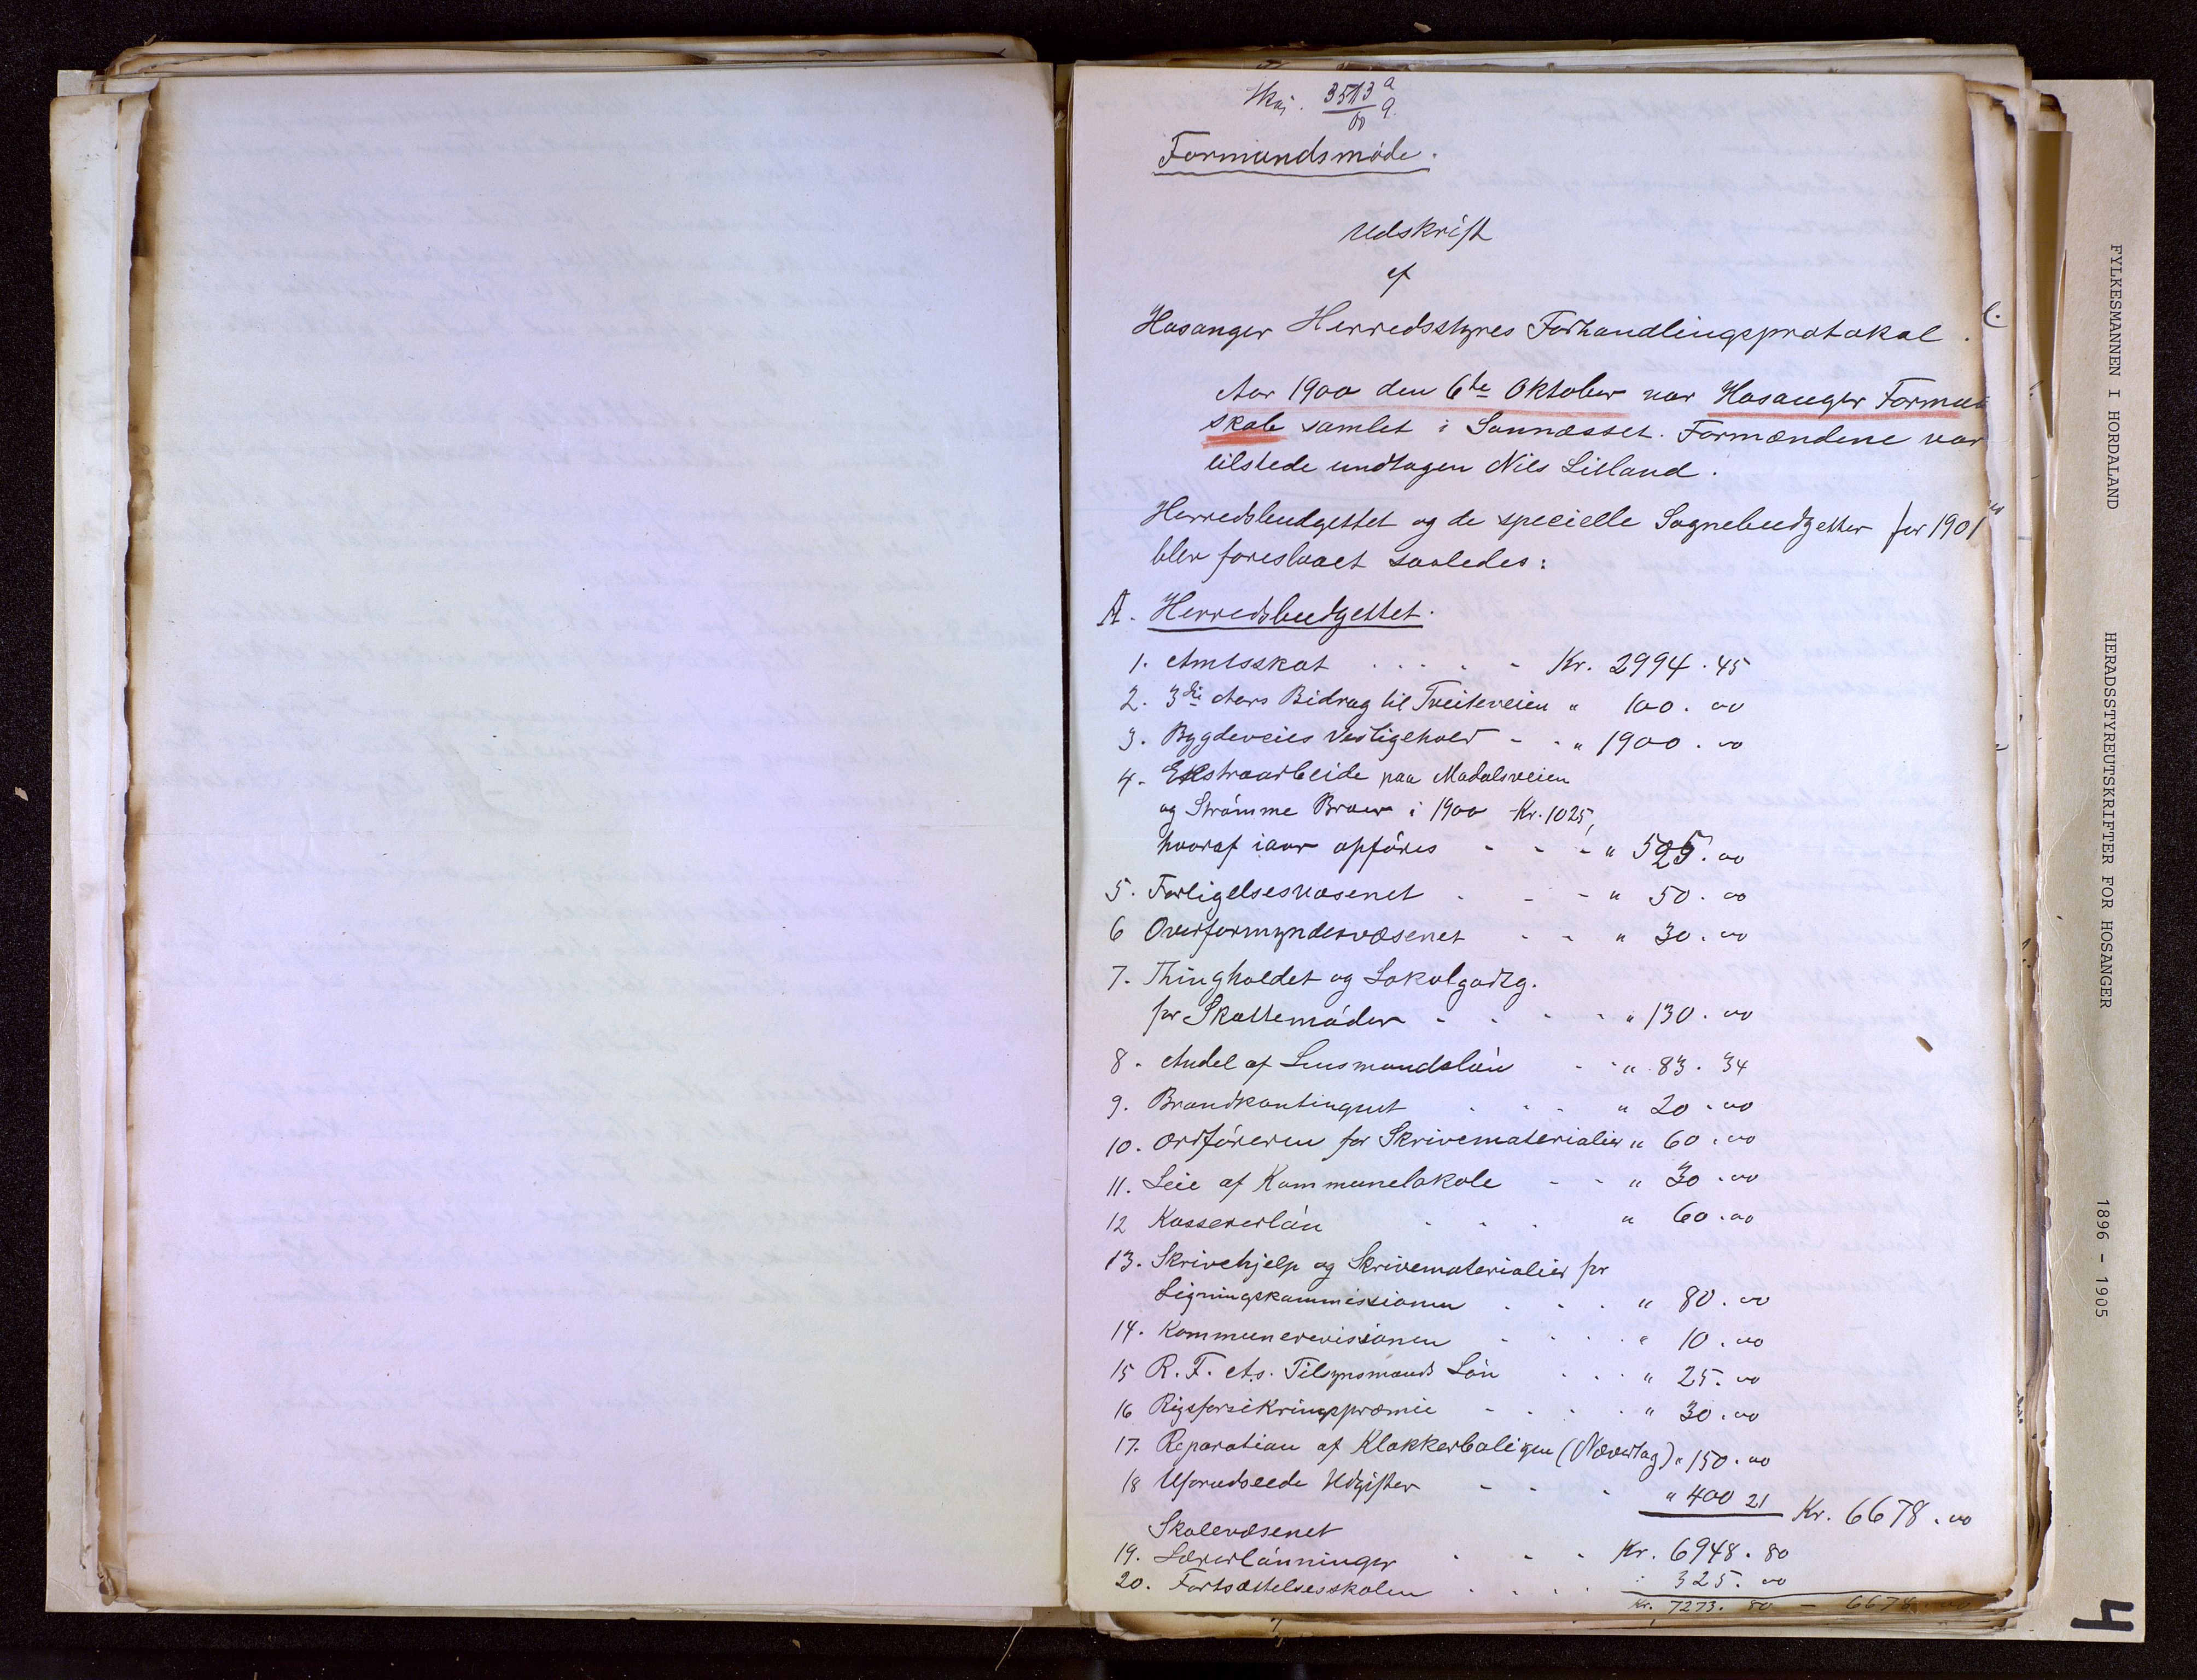 3513 a
00 9.
Formandsmøde.
Udskrift
af
Hosanger Herredsstyres Forhandlingsprotokol.
Aar 1900 den 6te Oktober var Hosanger Forman
skab samlet i Sonnæsset. Formændene var
tilstede undtagen Nils Lilland.
Herredsbudgettet og de specielle Sognebudgetter for 1901
blev foreslaaet saaledes:
A. Herredsbudgettet.
1. Amtsskat . . . . - Kr. 2994.45
2. 3die Aars Bidrag til Tveiteveien " 100.00
3. Bygdeveies Vedligehold - - " 1900.00
4. Ekstraarbeide paa Modalsveien
og Strømme Broer i 1900 Kr. 1025,
hvoraf iaar opføres - - - " 525.00
5. Forligelsesvæsenet . - - " 50.00
6 Overformyndervæsenet - - " 30.00
7. Thingholdet og Lokalgodtg.
for Skattemøder - - - - " 130.00
8. Andel af Lensmandsløn - - " 83.34
9. Brandkontingent . . . " 20.00
10. Ordføreren for Skrivematerialier " 60.00
11. Leie af Kommunelokale - - " 30.00
12 Kassererløn . . . " 60.00
13. Skrivehjelp og Skrivematerialier for
Ligningskommissionen . . . " 80.00
14. Kommunerevisionen . . . . " 10.00
15 R. F. A.s. Tilsynsmands Løn . . . " 25.00
16 Rigsforsikringspræmie - . . . " 30.00
17. Reparation af Klokkerboligen (Nævertag) " 150.00
18 Uforudseede Udgifter - - - " 400 21 Kr. 6678.00
Skolevæsenet
19. Lærerlønninger . - - Kr. 6948.80
20. Fortsættelsesskolen . . . . : 325.00
Kr. 7273. 80 - 6678.00
FYLKESMANNEN I HORDALAND
HERADSSTYREUTSKRIFTER FOR HOSANGER
1896 - 1905
4